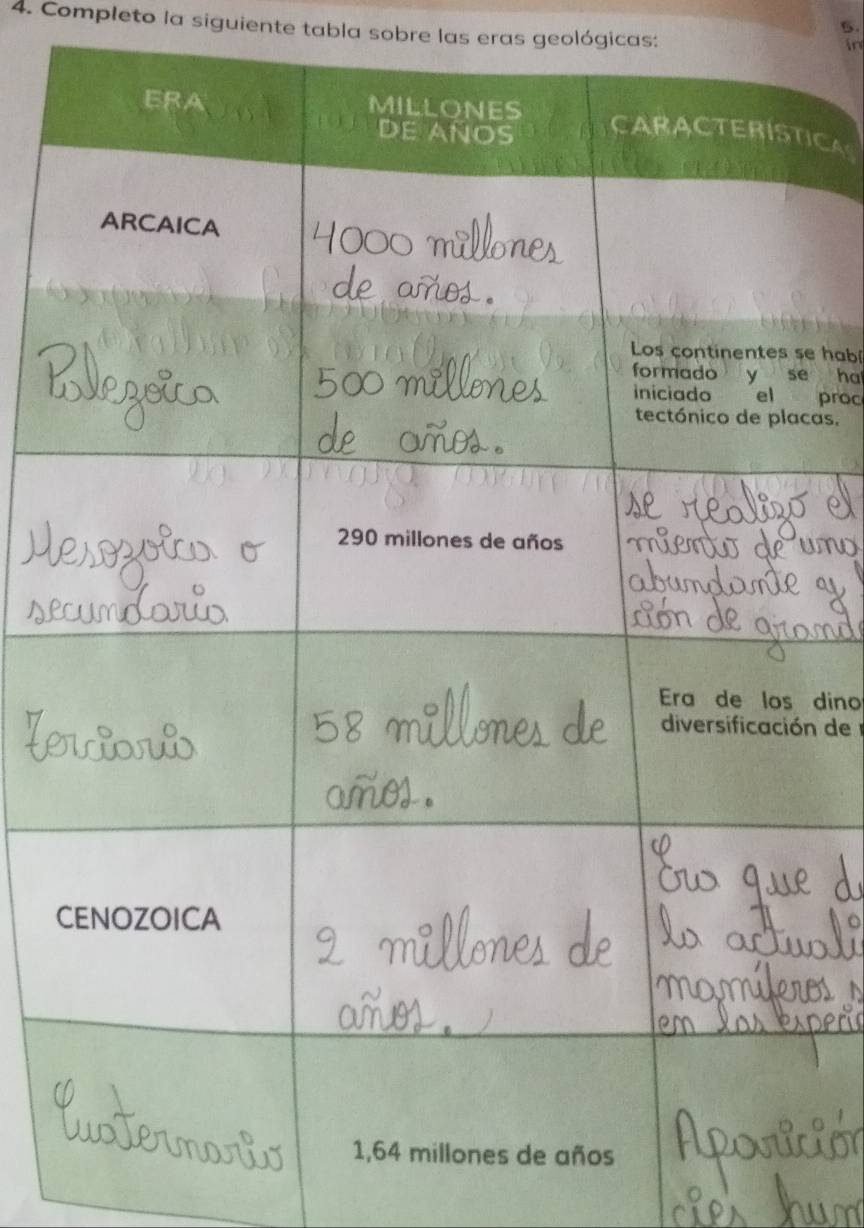 4. Completo la siguiente tabla sobre las eras geológicas:
5.
in
ERA
MILLONES
DE AÑOS
CARACTERÍSTICAS
ARCAICA
4000 millones
de años.
Polezoica
500 millones
de años.
Los continentes se
formado y se
iniciado el
tectónico de placas.
Mesozoica o
secundaria
290 millones de años
se realizó el
miento de una
abundante
ción de
Terciario
58 millones de
años.
Era de los dino
diversificación de
CENOZOICA
2 millones de
años.
Era que
la
mamíferos
en las
Cuaternario
1,64 millones de años
Aparición
cies hum